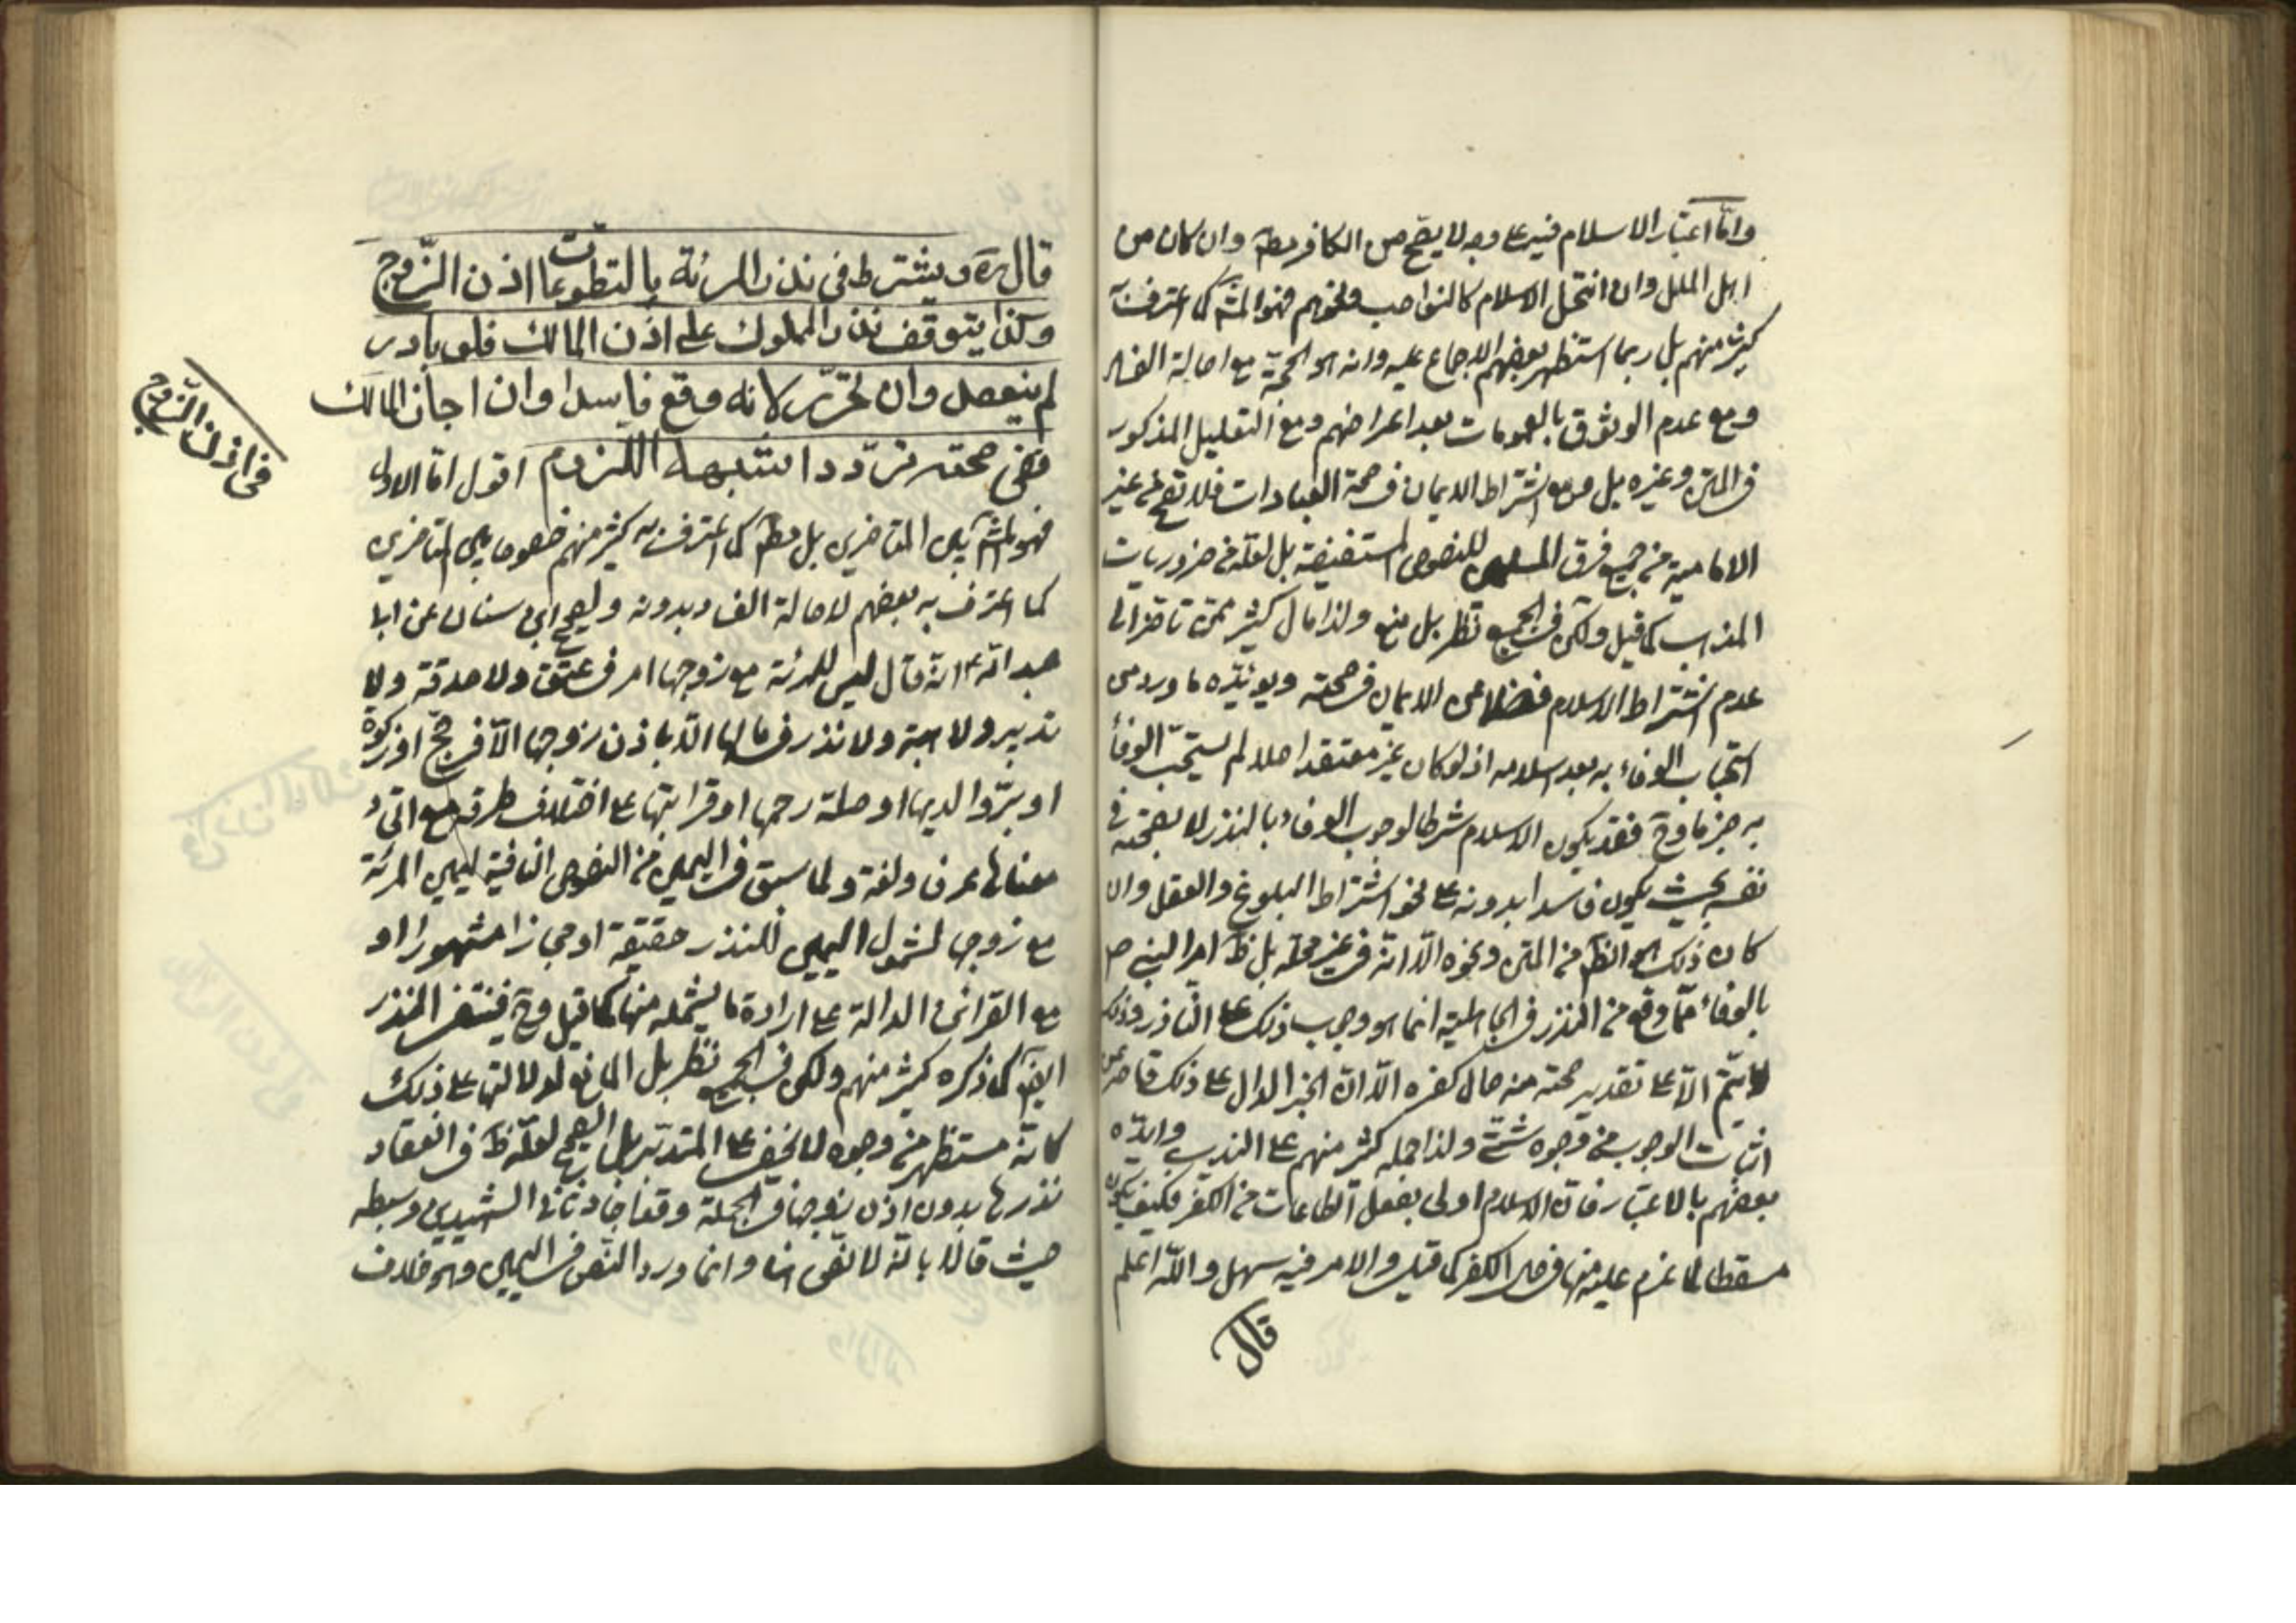 واما اعتبار الاسلام فيه على وجه لا يصح من الكافر مطم وان كان من
اهل الملل وان انتحل الاسلام كالنواصب ونحوهم فهو المشـ كما اعترف به
كثير منهم بل ربما استظهر بعضهم الاجماع عليه وانه هو الحجة مع اصالة الفسا
ومع عدم الوثوق بالعمومات بعد اعراضهم ومع التعليل المذكور
في المتن وغيره بل ومع اشتراط الايمان في صحة العبادات فلا تصح من غير
الامامية من جميع فرق المسلمين للنصوص المستفيضة بل لعله من ضروريات
المذهب كما قيل ولكن في الجميع نظر بل منع ولذا مال كثير ممن تاخر الى
عدم اشتراط الاسلام فضلا عن الايمان في صحته ويؤيده ما ورد من
استحباب الوفاء به بعد اسلامه اذ لو كان غير معتقد اصلا لم يستحب الوفاء
به جزما وح فقد يكون الاسلام شرطا لوجوب الوفاء بالنذر لا بصحته في
نفسه بحيث يكون فاسدا بدونه على نحو اشتراط البلوغ والعقل وان
كان ذلك هو الظم من المتن ونحوه الا انه في غير محله بل ظ امر النبي ص
بالوفاء مما وقع من النذر في الجاهلية انما هو وجوب ذلك على الناذر وذلك
لا يتم الا على تقدير صحته منه حال كفره الا ان الخبر الدال على ذلك قاصر عن
اثبات الوجوب من وجوه شتى ولذا حمله كثير منهم على الندب وايده
بعضهم بالاعتبار فان الاسلام اولى بفعل الطاعات من الكفر فكيف يكون
مسقطا لما عزم عليه منها في حال الكفر كما قيل والامر فيه سهل والله اعلم
قال
قال ره ويشترط في نذر المرئة بالتطوعات اذن الزوج
وكذا يتوقف نذر المملوك على اذن المالك فلو بادر
لم ينعقد وان تحرر لانه وقع فاسدا وان اجاز المالك
ففي صحته تردد اشبهه اللزوم اقول اما الاول
فهو المشـ بين المتاخرين بل مطم كما اعترف به كثير منهم خصوصا بين المتاخرين
كما اعترف به بعضهم لاصالة الفساد بدونه ولصحيح ابن سنان عن ابا
عبد الله ع انه قال ليس للمرئة مع زوجها امر في عتق ولا صدقة ولا
تدبير ولا هبة ولا نذر في مالها الا باذن زوجها الا في حج او زكوة
او بر والديها او صلة رحمها او قرابتها على اختلاف طرقه مع اتحاد
معناها عرفا ولغة ولما سبق في اليمين من النصوص النافية ليمين المرئة
مع زوجها لشمول اليمين للنذر حقيقة او مجازا مشهورا او
مع القرائن الدالة على ارادة ما يشمله منها كما قيل وح فينتفى النذر
ايضا كما ذكره كثير منهم ولكن في الجميع نظر بل المانع لولا النها على ذلك
كانه مستظهر من وجوه لا تخفى على المتدبر بل الصحيح لعله ظ في انعقاد
نذرها بدون اذن زوجها في الجملة وفاقا لثاني الشهيدين وسبطه
حيث قالا بانه لا نص هنا وانما ورد النص في اليمين وهو خلاف
في اذن الزوج